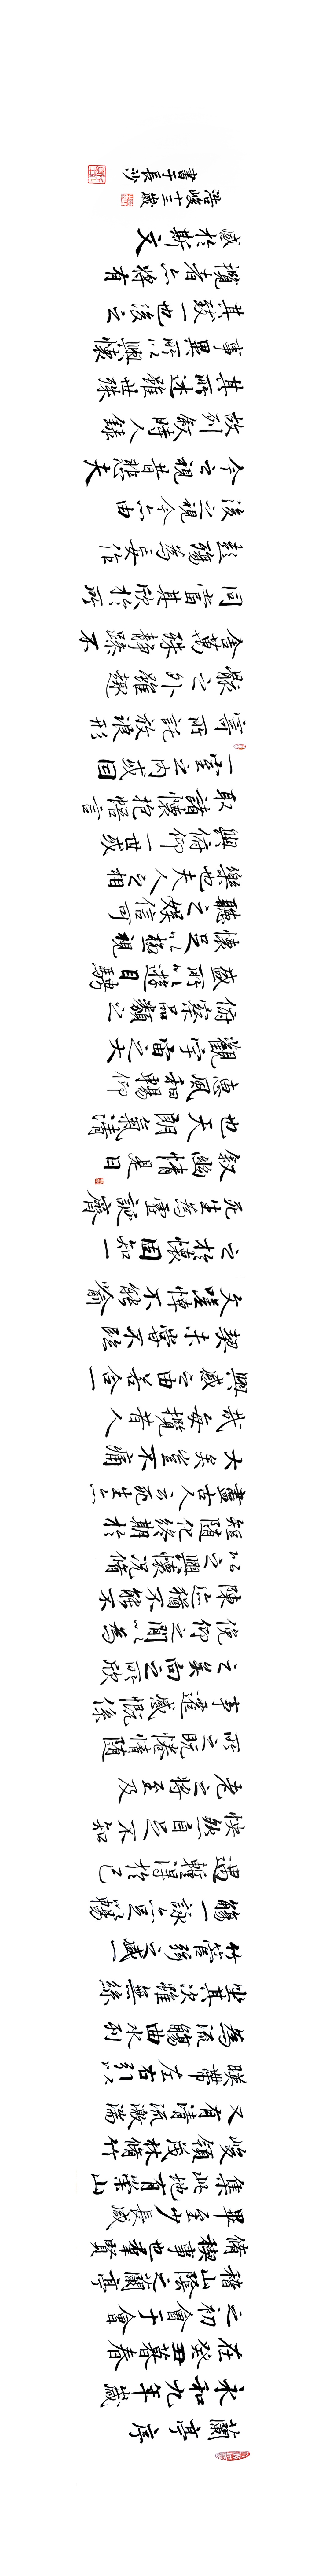 蘭亭序
永和九年歲
在癸丑暮春
之初會于會
稽山陰之蘭亭
脩稧事也羣賢
畢至少長咸
集此地有崇山
峻領茂林脩竹
又有清流激湍
暎帶左右引以
為流觴曲水列
坐其次雖無絲
竹管弦之盛一
觴一詠亦足以暢
遇暫得於己
怏然自足不知
老之將至及
所之既惓情隨
事遷感慨係
之矣向之所欣
俛仰之間以為
陳迹猶不能不
以之興懷況脩
短隨化終期於
盡古人云死生亦
大矣豈不痛
哉每攬昔人
興感之由若合一
契未嘗不臨
文嗟悼不能喻
之於懷固知一
死生為虛誕齊
敘幽情是日
也天朗氣清
惠風和暢仰
觀宇宙之大
俯察品類之
盛所以遊目騁
懷足以極視
聽之娛信可
樂也夫人之相
與俯仰一世或
取諸懷抱悟言
一室之內或因
寄所託放浪形
骸之外雖趣
舍萬殊靜躁不
同當其欣於所
彭殤為妄作
後之視今亦由
今之視昔悲夫
故列敘時人錄
其所述雖世殊
事異所以興懷
其致一也後之
攬者亦將有
感於斯文
浩峻十三歲
書于長沙